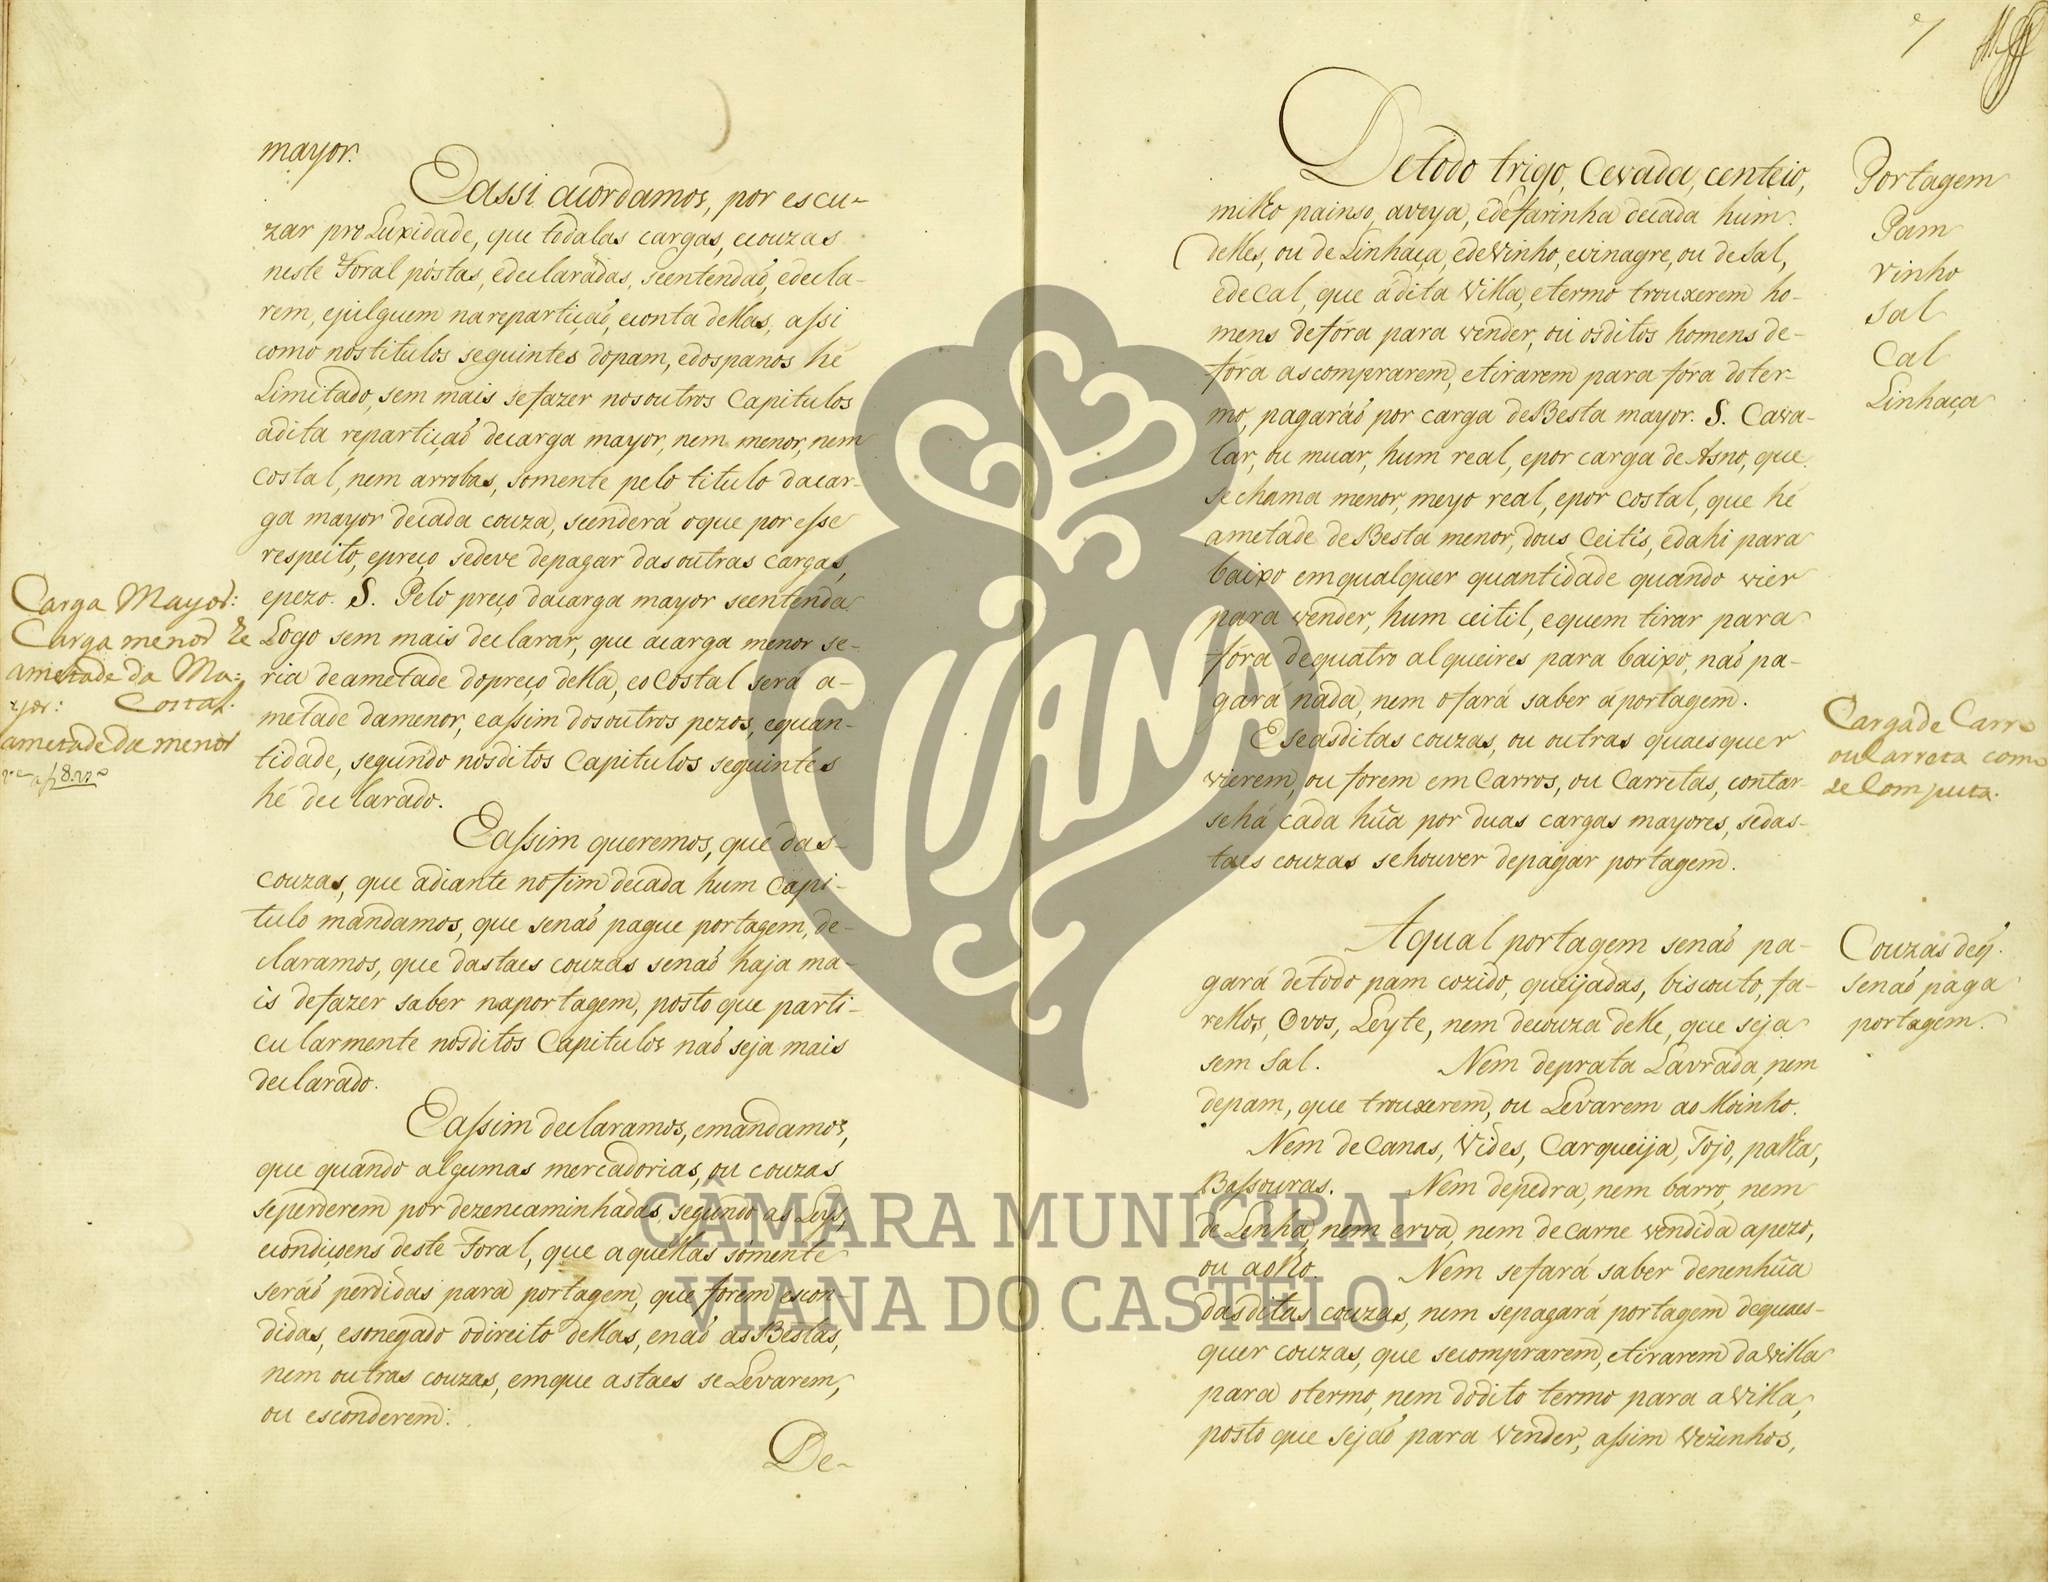 mayor.
E assi acordamos, por escu-
zar proLuxidade, que todalas cargas, ecouzas
neste Foral póstas, edeclaradas, seentendaõ, edecla-
rem, ejulguem narepartiçaõ, econta dellas, assi
como nostitulos seguintes dopam, edospanos hé
Limitado, sem mais sefazer nosoutros Capitulos
adita repartiçaõ decarga mayor, nem menor, nem
costal, nem arrobas, somente pelo titulo dacar-
ga mayor decada couza, seenderá oque por esse
respeito, epreço sedeve depagar dasoutras cargas,
epezo. S. Pelo preço dacarga mayor seentenda
Logo sem mais declarar, que acarga menor se-
ria deametade dopreço della, eo Costal será a-
metade damenor, eassim dosoutros pezos, equan-
tidade, segundo nosditos Capitulos seguintes
hé declarado.
Eassim queremos, que das
couzas, que adiante nofim decada hum Capi-
tulo mandamos, que senaõ pague portagem, de-
claramos, que dastaes couzas senaõ haja ma-
is defazer saber naportagem, posto que parti-
cularmente nosditos Capitulos naõ seja mais
declarado.
Eassim declaramos, emandamos,
que quando algumas mercadorias, ou couzas
seperderem por dezencaminhadas, segundo as Leys,
econdiçoens deste Foral, que aquellas sómente
seráõ perdidas para portagem, que forem escon-
didas, esonegado odireito dellas, enaõ as Bestas,
nem outras couzas, emque astaes se Levarem,
ou esconderem.
De-
Carga Mayor:
Carga menor he
ametade da Ma-
yor: Costal
ametade da menor
7
Detodo trigo, Cevada, centeio,
milho painso, aveya, edefarinha decada hum
delles, ou de Linhaça, edevinho, evinagre, ou de Sal,
edeCal, que ádita Villa, etermo trouxerem ho-
mens defóra para vender, ou osditos homens de-
fóra ascomprarem, etirarem para fóra doter-
mo, pagaráõ por carga deBesta mayor. S. Cava-
lar, ou muar, hum real, epor carga de Asno, que
sechama menor, meyo real, epor costal, que hé
ametade deBesta menor, dous Ceitís, edahi para
baixo emqualquer quantidade quando vier
para vender, hum ceitil, equem tirar para
fóra dequatro alqueires para baixo, naõ pa-
gará nada, nem ofará saber áportagem.
Eseasditas couzas, ou outras quaesquer
vierem, ou forem em Carros, ou Carretas, contar-
sehá cada hũa por duas cargas mayores, sedas-
taes couzas sehouver depagar portagem.
Aqual portagem senaõ pa-
gará detodo pam cozido, queijadas, biscouto, fa-
rellos, Ovos, Leyte, nem decouza delle, que seja
sem Sal. Nem deprata Lavrada, nem
depam, que trouxerem, ou Levarem ao Moinho.
Nem deCanas, Vides, Carqueija, Tojo, palha,
Bassouras. Nem depedra, nem barro, nem
de Lenha, nem erva, nem deCarne vendida apezo,
ou aolho. Nem sefará saber denenhũa
dasditas couzas, nem sepagará portagem dequaes-
quer couzas, que secomprarem, etirarem daVilla
para otermo, nem dodito termo para aVilla,
posto que sejaõ para vender, assim Vezinhos,
Portagem
Pam
Vinho
Sal
Cal
Linhaça
Cargade Carro
ouCarreta como
se Computa.
Couzas deq̃
senaõ paga
portagem.
VIANA
CÂMARA MUNICIPAL
VIANA DO CASTELO